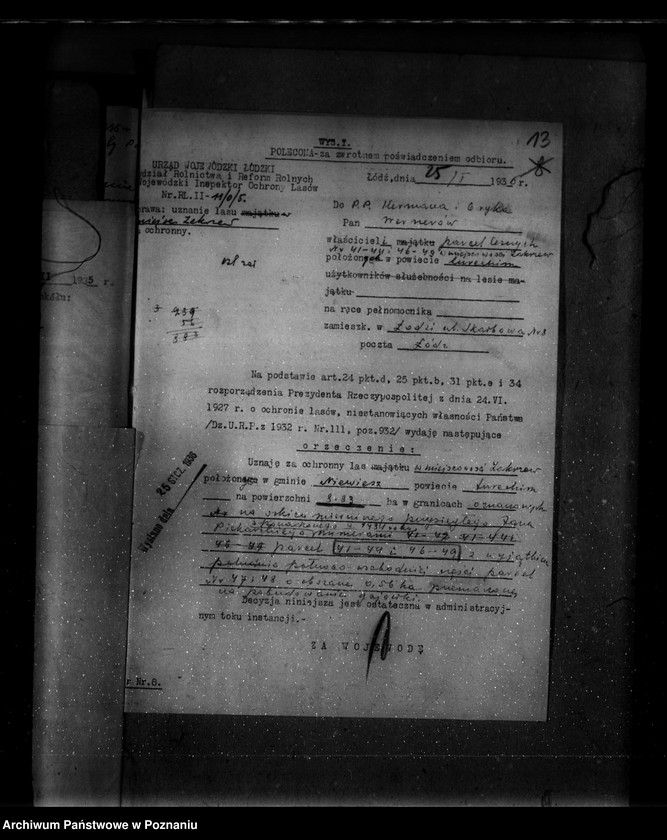 13
WYD.I.
POLECONA-za zwrotnem poświadczeniem odbioru.
URZĄD WOJEWÓDZKI ŁÓDZKI
dział Rolnictwa i Reform Rolnych
ojewódzki Inspektor Ochrony Lasów
Nr.RL.II-11/0/5.
Łódź,dnia 25/I 1936 r.
rawa: uznanie lasu majątku w
Zakrzew
ochronny.
Do P.P. Hermana i Eryka
Pan Wernerów
właścicieli majątku parcel leśnych
Nr 41-44 i 46-49 w miejscowości Zakrzew
położonych w powiecie tureckim
użytkowników służebności na lesie ma-
jątku
na ręce pełnomocnika
zamieszk. w Łodzi ul. Skarbowa Nr 8
poczta Łódź
1935 r.
439
56
383
Na podstawie art.24 pkt.d, 25 pkt.b, 31 pkt.e i 34
rozporządzenia Prezydenta Rzeczypospolitej z dnia 24.VI.
1927 r. o ochronie lasów, niestanowiących własności Państwa
/Dz.U.R.P.z 1932 r. Nr.111, poz.932/ wydaję następujące
orzeczenie:
Uznaję za ochronny las majątku w miejscowości Zakrzew
położonego w gminie Niewiesz powiecie tureckim
na powierzchni 3.83 ha w granicach oznaczonych
na szkicu Jana
Piekarskiego numerami 41-42 41-44i
46-49 parcel 41-44 i 46-49 z wyjątkiem
północno wschodniej części parcel
Nr 47 i 48 o obszarze 0,56 ha
na pobudowanie gajówki.
Decyzja niniejsza jest ostateczna w administracyj-
nym toku instancji.-
ZA WOJEWODĘ
Wysłano dnia 25 STCZ. 1936
r Nr.8.
Archiwum Państwowe w Poznaniu